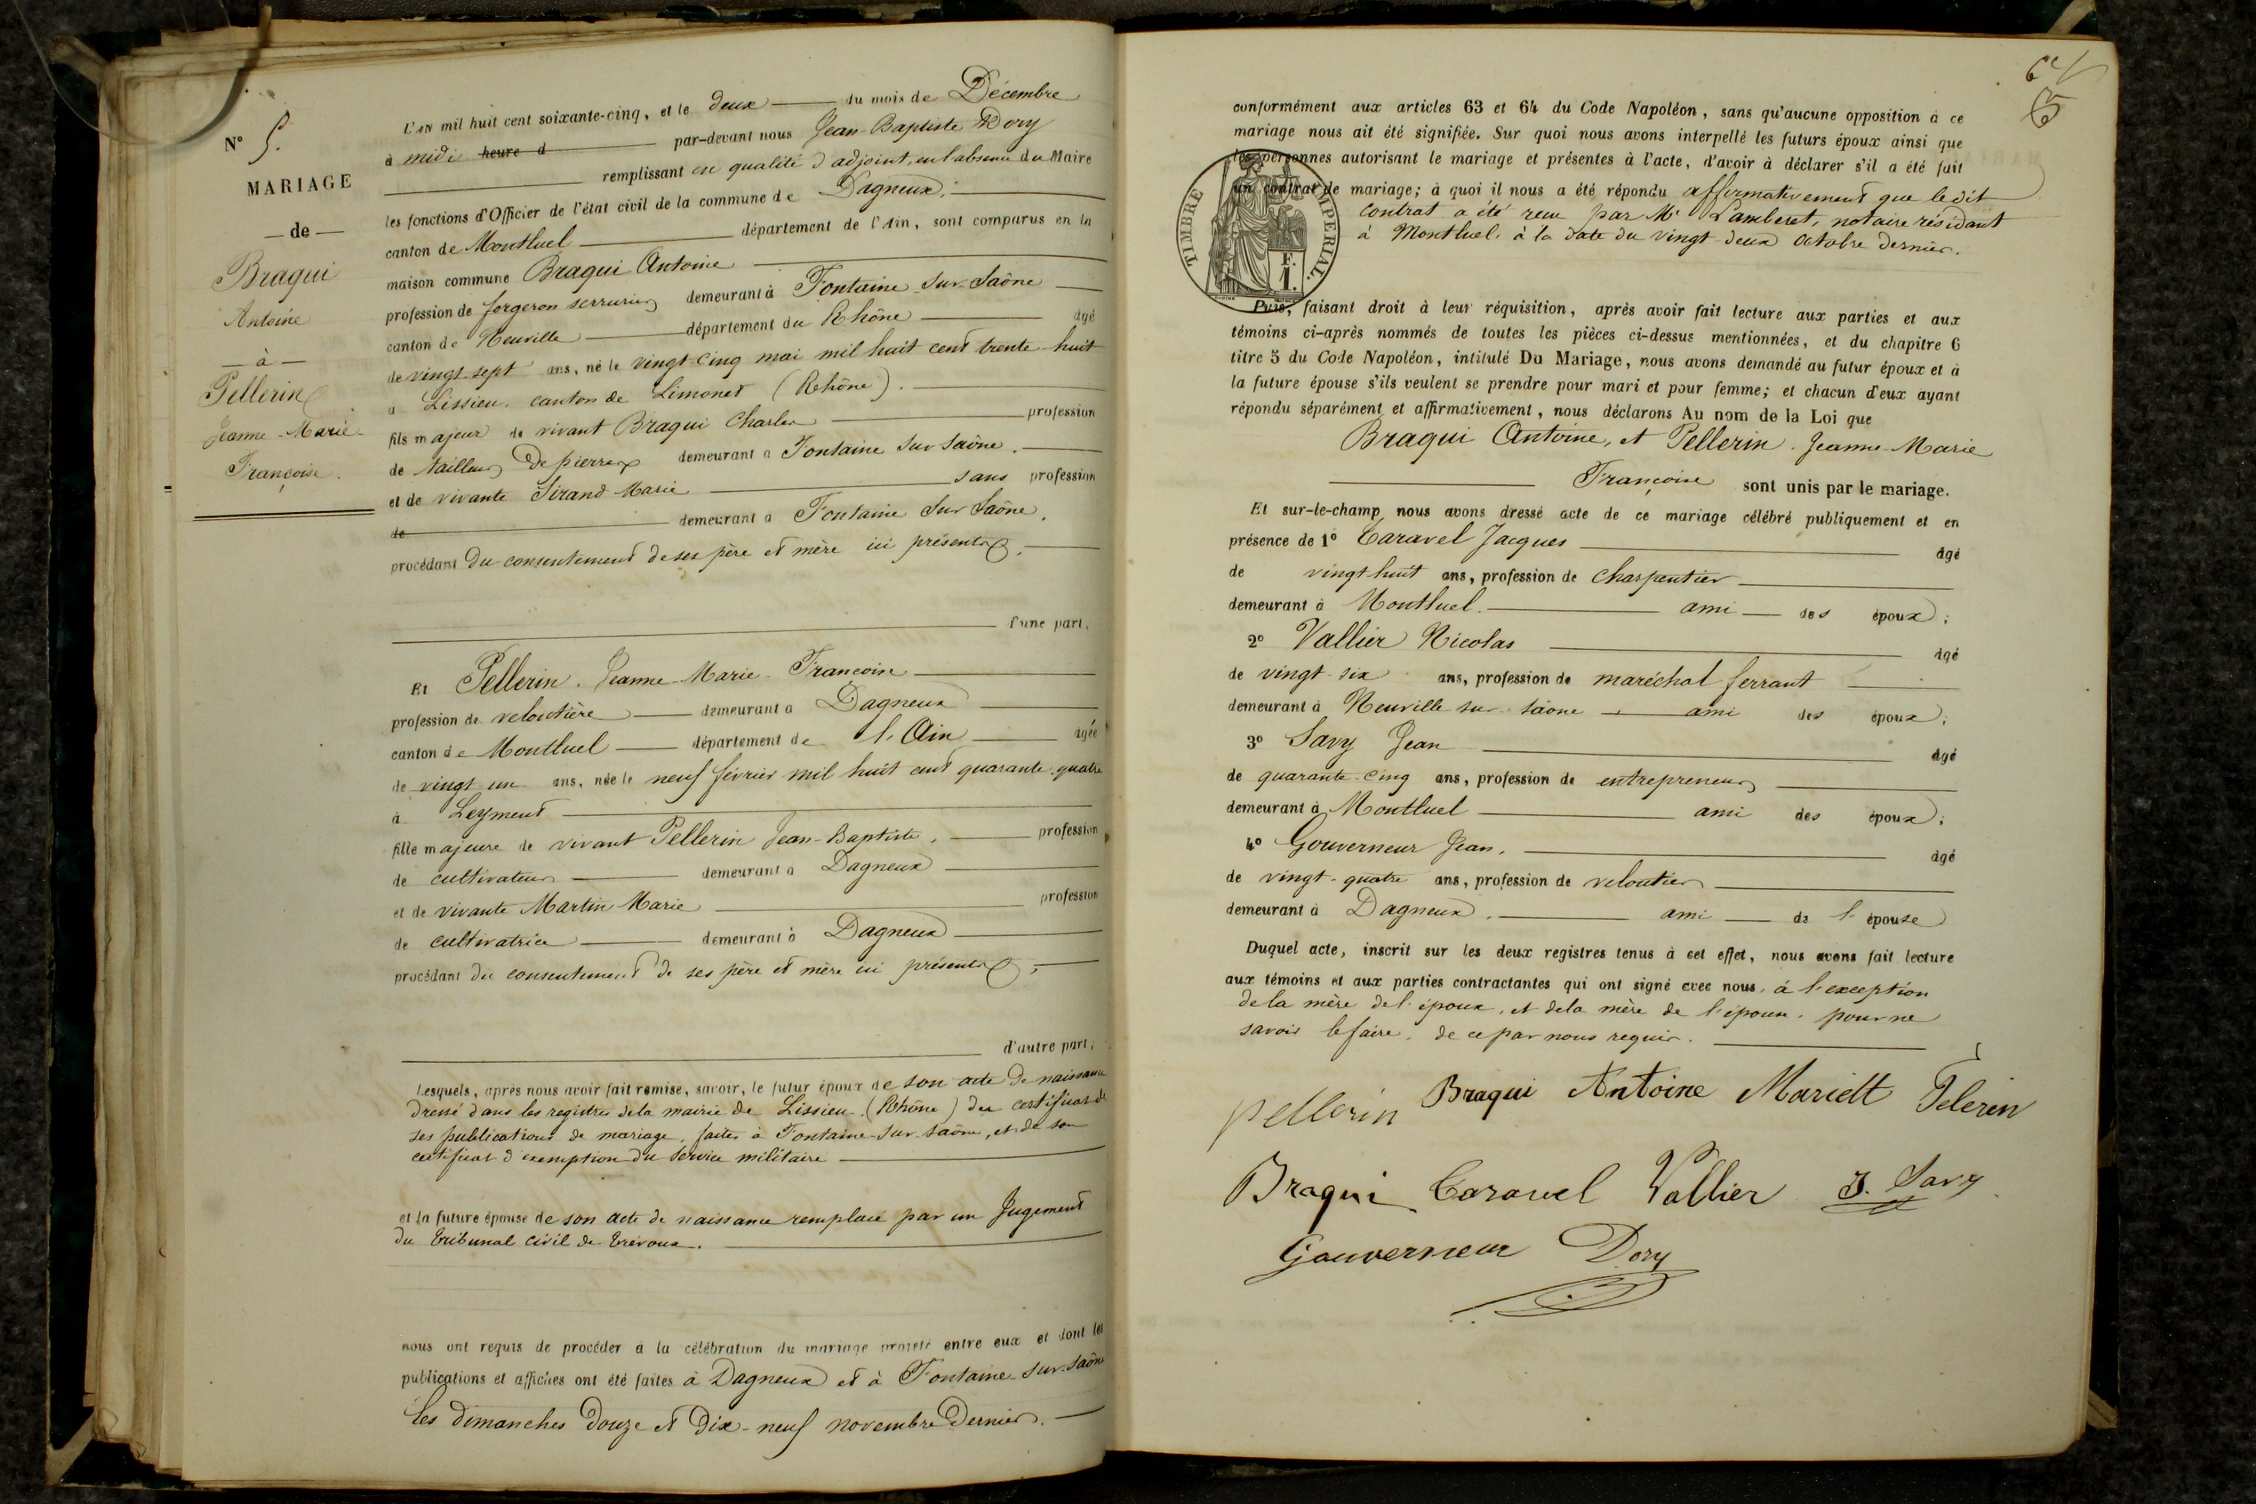 N° 5.
MARIAGE
— de —
Braqui
Antoine
— à —
Pellerin
Jeanne-Marie-
Françoise.
L'AN mil huit cent soixante-cinq, et le deux du mois de Décembre
à midi heure d par-devant nous Jean-Baptiste Dory
remplissant en qualité d'adjoint, en l'absence du Maire
les fonctions d'Officier de l'état civil de la commune de Dagneux,
canton de Montluel département de l'Ain, sont comparus en la
maison commune Braqui Antoine
profession de forgeron serrurier demeurant à Fontaine-Sur-Saône
canton de Neuville département du Rhône âgé
de vingt-sept ans, né le vingt-cinq mai mil huit cent trente-huit
à Lissieu. canton de Limonet (Rhône).
fils majeur de vivant Braqui Charles profession
de tailleur de pierres demeurant à Fontaine Sur Saône.
et de vivante Sirand Marie sans profession
de demeurant à Fontaine Sur Saône.
procédant du consentement de ses père et mère ici présents.
d'une part,
Et Pellerin. Jeanne-Marie-Francoise
profession de veloutière demeurant à Dagneux
canton de Montluel département de l'Ain âgée
de vingt un ans, née le neuf février mil huit cent quarante-quatre
à Leyment
fille majeure de vivant Pellerin Jean-Baptiste, profession
de cultivateur demeurant à Dagneux
et de vivante Martin Marie profession
de cultivatrice demeurant à Dagneux
procédant du consentement de ses père et mère ici présents,
d'autre part;
Lesquels, après nous avoir fait remise, savoir, le futur époux de son acte de naissance
dressé dans les registres de la mairie de Lissieu. (Rhône) du certificat de
ses publications de mariage, faites à Fontaine-Sur-Saône, et de son
certificat d'exemption du service militaire
et la future épouse de son acte de naissance remplacé par un Jugement
du tribunal civil de Trévoux.
nous ont requis de procéder à la célébration du mariage projeté entre eux et dont les
publications et affiches ont été faites à Dagneux et à Fontaine-Sur-Saône
les dimanches douze et dix-neuf novembre dernier.
conformément aux articles 63 et 64 du Code Napoléon, sans qu'aucune opposition à ce
mariage nous ait été signifiée. Sur quoi nous avons interpellé les futurs époux ainsi que
les personnes autorisant le mariage et présentes à l'acte, d'avoir à déclarer s'il a été fait
un contrat de mariage; à quoi il nous a été répondu affirmativement que le dit
contrat a été reçu par Me Lamberet, notaire résidant
à Montluel. à la date du vingt-deux octobre dernier.
TIMBRE IMPERIAL.
F.
1.
Puis, faisant droit à leur réquisition, après avoir fait lecture aux parties et aux
témoins ci-après nommés de toutes les pièces ci-dessus mentionnées, et du chapitre 6
titre 5 du Code Napoléon, intitulé Du Mariage, nous avons demandé au futur époux et à
la future épouse s'ils veulent se prendre pour mari et pour femme; et chacun d'eux ayant
répondu séparément et affirmativement, nous déclarons Au nom de la Loi que
Braqui Antoine, et Pellerin. Jeanne-Marie
Françoise sont unis par le mariage.
Et sur-le-champ nous avons dressé acte de ce mariage célébré publiquement et en
présence de 1° Caravel Jacques âgé
de vingt huit ans, profession de charpentier
demeurant à Montluel. ami des époux;
2° Vallier Nicolas âgé
de vingt-six ans, profession de maréchal ferrant
demeurant à Neuville sur Saône ami des époux;
3° Savy Jean âgé
de quarante-cinq ans, profession de entrepreneur
demeurant à Montluel ami des époux;
4° Gouverneur Jean. âgé
de vingt-quatre ans, profession de veloutier
demeurant à Dagneux. ami de l'épouse
Duquel acte, inscrit sur les deux registres tenus à cet effet, nous avons fait lecture
aux témoins et aux parties contractantes qui ont signé avec nous, à l'exception
de la mère de l'époux, et de la mère de l'époux. pour ne
savoir le faire. de ce par nous requis.
pellerin Braqui Antoine Mariett Pelerin
Braqui Caravel Vallier J. Savy
Gouverneur Dory